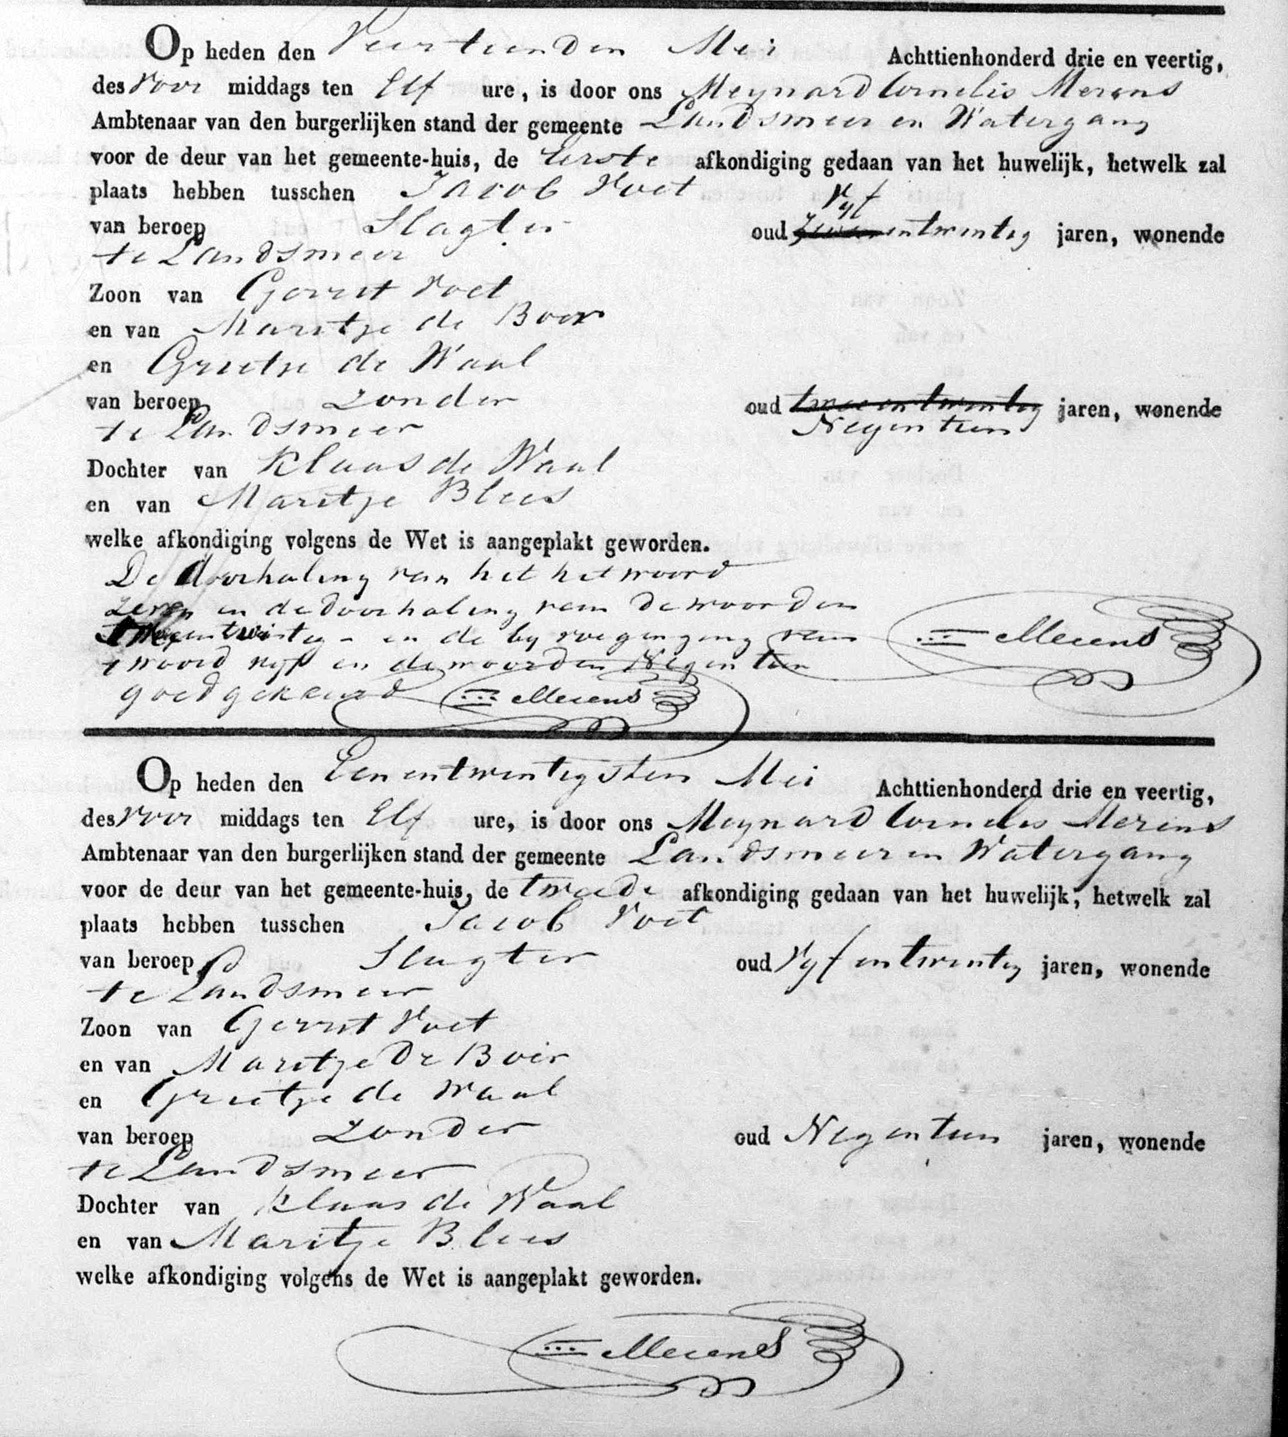 Op heden den Veertienden Mei Achttienhonderd drie en veertig,
des Voor middags ten Elf ure, is door ons Meynard Cornelis Merens
Ambtenaar van den burgerlijken stand der gemeente Landsmeer en Watergang
voor de deur van het gemeente-huis, de Eerste afkondiging gedaan van het huwelijk, hetwelk zal
plaats hebben tusschen Jacob Voet
Vyf
van beroep Slagter oud zeven entwintig jaren, wonende
te Landsmeer
Zoon van Gerrit Voet
en van Maritje de Boer
en Grietje de Waal
van beroep zonder oud tweeentwintig jaren, wonende
te Landsmeer Negentien
Dochter van Klaas de Waal
en van Maritje Blees
welke afkondiging volgens de Wet is aangeplakt geworden.
De doorhaling van het het woord
zeven en de doorhaling van de woorden
Tweeentwintig - en de byvoeginging van
t woord vyf en de woorden Negentien
goedgekeurd Merens
Merens
Op heden den Eenentwintigsten Mei Achttienhonderd drie en veertig,
des Voor middags ten Elf ure, is door ons Meynard Cornelis Merens
Ambtenaar van den burgerlijken stand der gemeente Landsmeer en Watergang
voor de deur van het gemeente-huis, de tweede afkondiging gedaan van het huwelijk, hetwelk zal
plaats hebben tusschen Jacob Voet
van beroep Slagter oud Vyf entwintig jaren, wonende
te Landsmeer
Zoon van Gerrit Voet
en van Maritje De Boer
en Grietje de Waal
van beroep zonder oud Negentien jaren, wonende
te Landsmeer
Dochter van Klaas de Waal
en van Maritje Blees
welke afkondiging volgens de Wet is aangeplakt geworden.
Merens